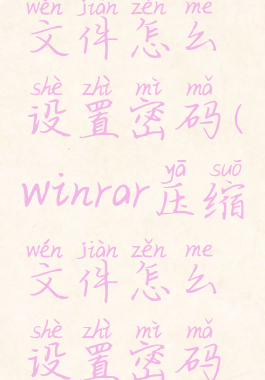 wén jiàn zěn me
文件怎么
shè zhì mì mǎ
设置密码(
yā suō
winrar压缩
wén jiàn zěn me
文件怎么
shè zhì mì mǎ
设置密码